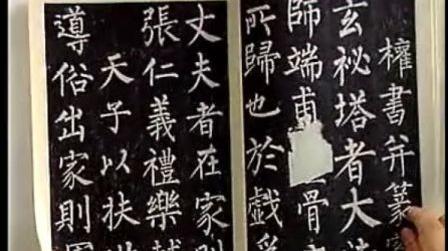 權書并篆
玄祕塔者大
師端甫骨
所歸也於戲為
丈夫者在家則
張仁義禮樂
天子以扶
導俗出家則